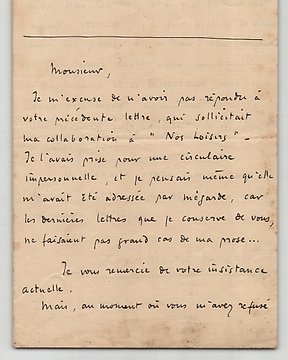 Monsieur,
Je m'excuse de n'avoir pas répondu à
votre précédente lettre, qui sollicitait
ma collaboration à " Nos Loisirs " _
Je l'avais prise pour une circulaire
impersonnelle, et je pensais même qu'elle
m'avait été adressée par mégarde, car
les dernières lettres que je conserve de vous,
ne faisaient pas grand cas de ma prose...
Je vous remercie de votre insistance
actuelle.
Mais, au moment où vous m'avez refusé